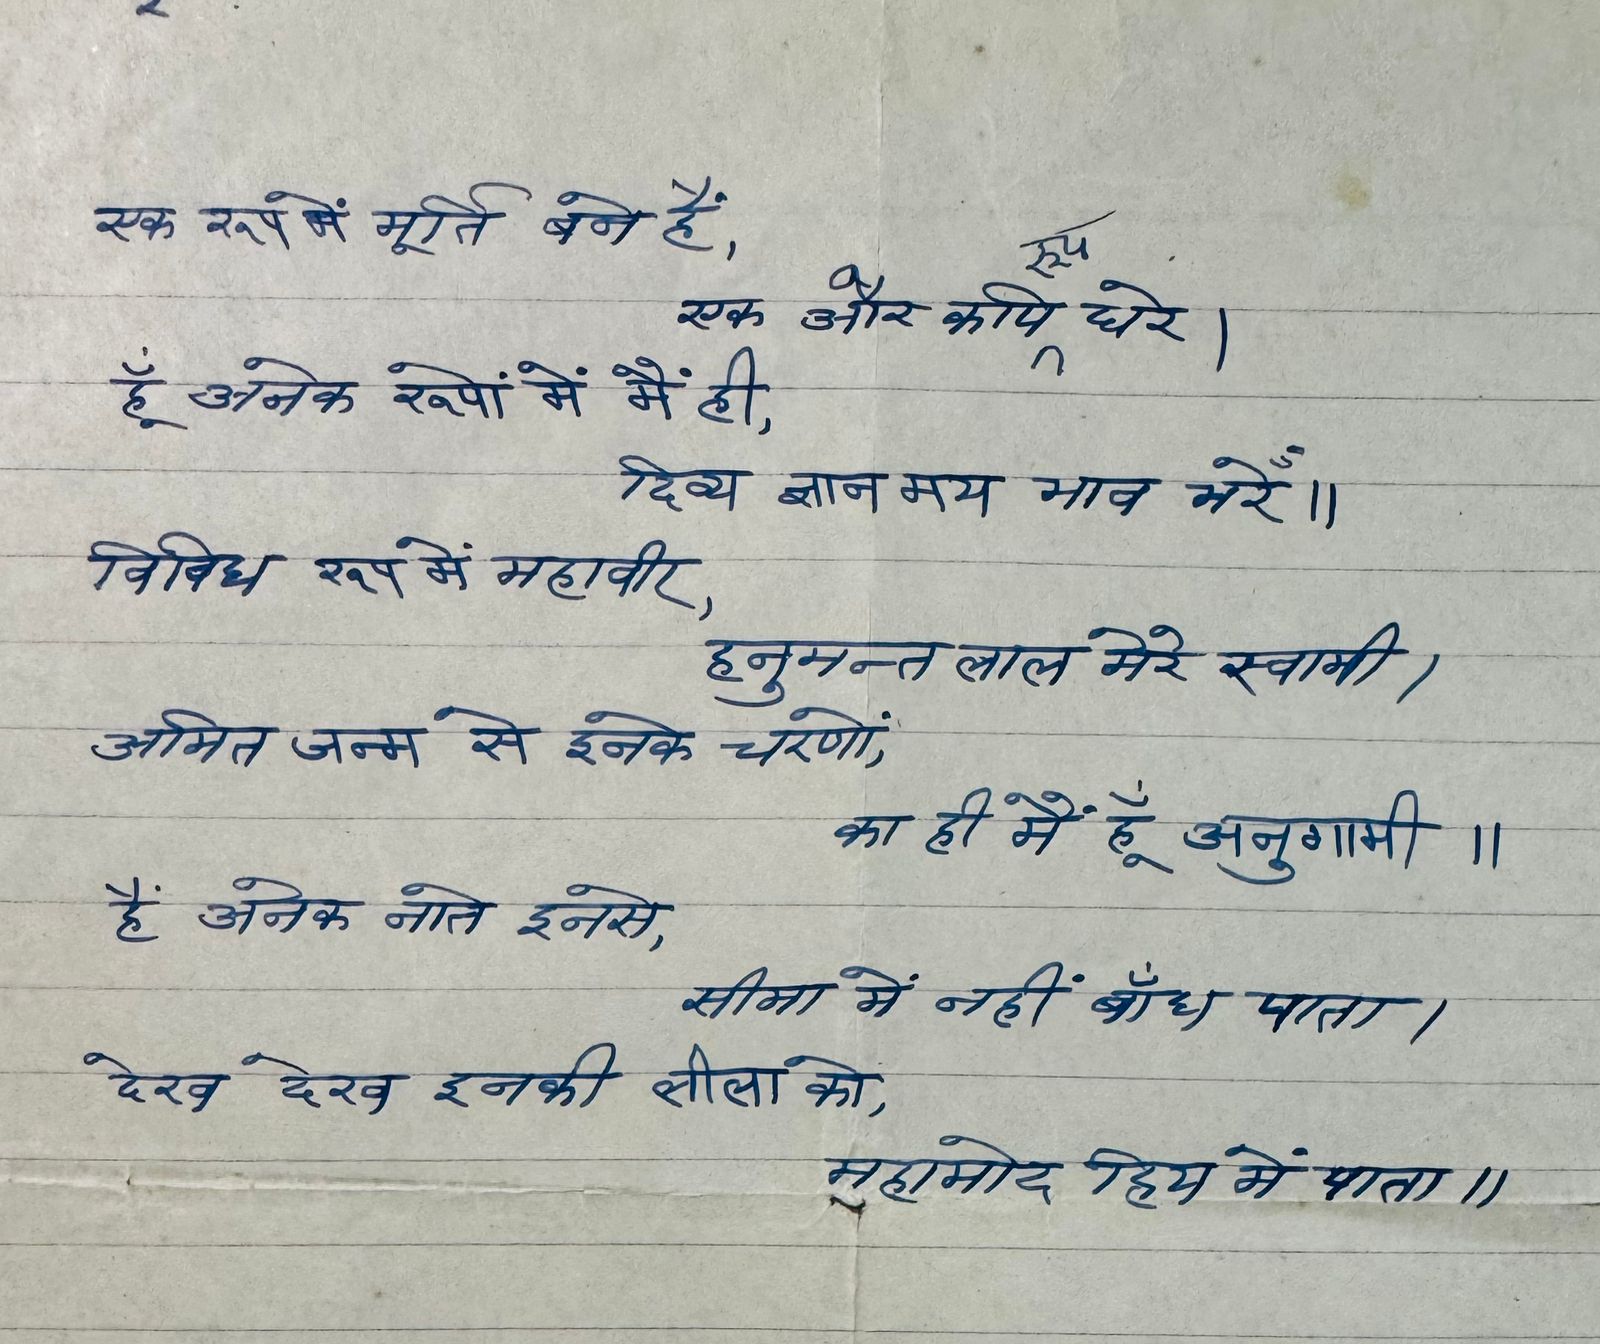 एक रूप में मूर्ति बने हैं,
एक और कपि रूप धरे।
हूँ अनेक रूपों में मैं ही,
दिव्य ज्ञान मय भाव भरेँ॥
विविध रूप में महावीर,
हनुमन्त लाल मेरे स्वामी।
अमित जन्म से इनके चरणों,
का ही मैं हूँ अनुगामी॥
हैं अनेक नाते इनसे,
सीमा में नहीं बाँध पाता।
देख देख इनकी लीला को,
महामोद हिय में पाता॥